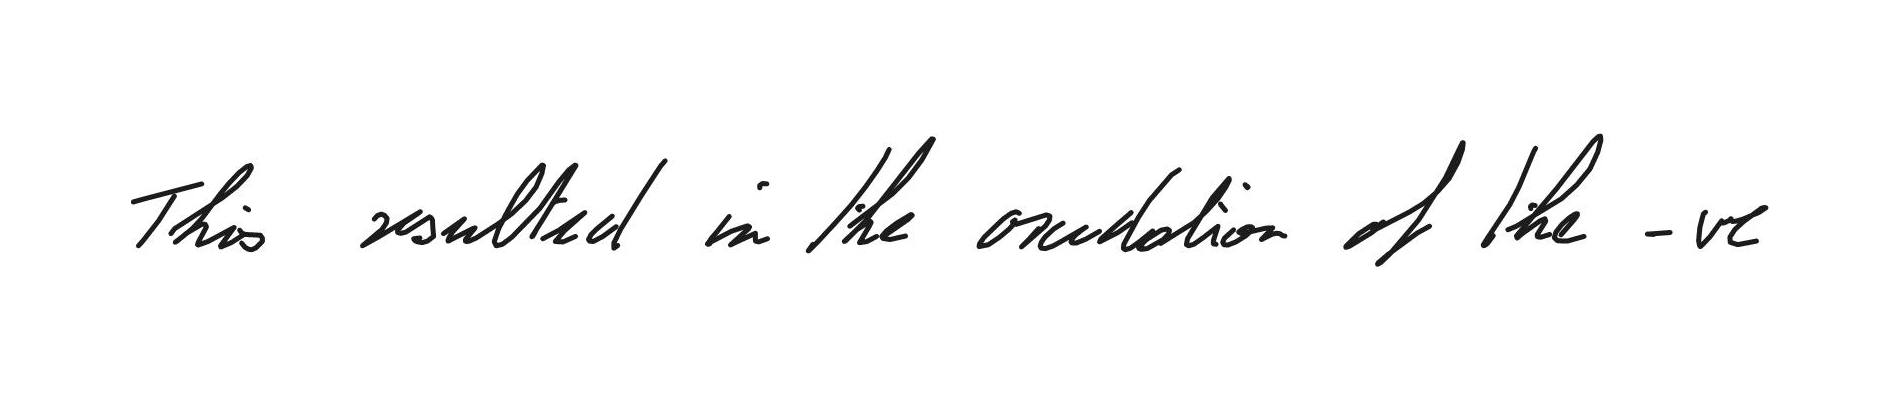 This resulted in the oxidation of the -ve